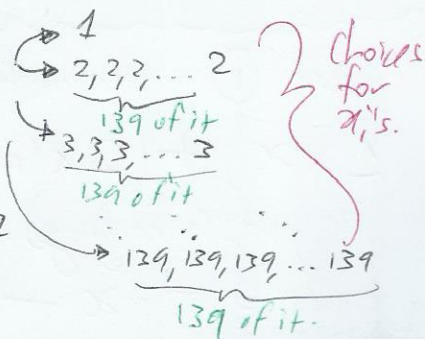 1
2, 2, 2, .... 2
139 of it
3, 3, 3, .... 3
139 of it
139, 139, 139, ... 139
139 of it.
choices
for
x,'s.